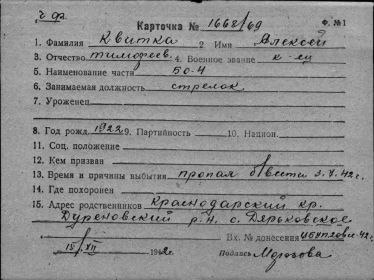 г ф.
Карточка № 1668/69 Ф. №1
1. Фамилия Квитка 2 Имя Алексей
3. Отчество Тимофеев. 4. Военное звание к-ец
5. Наименование части 50-4
6. Занимаемая должность стрелок
7. Уроженец
8. Год рожд. 1922 9. Партийность 10. Национ.
11. Соц. положение
12. Кем призван
13. Время и причины выбытия пропал б/вести 3.7.42 г.
14. Где похоронен
15. Адрес родственников Краснодарский кр.
Дуреновский р.н. с. Дядьковское
Вх. № донесения 42 г.
15/XII 1942 г. Подпись Морозова